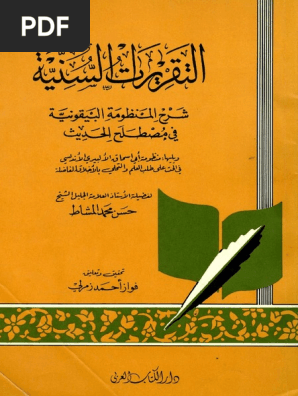 PDF
التقريرات السنية
شرح المنظومة البيقونية
في مصطلح الحديث
ويليها: منظومة أبي إسحاق الألبيري الأندلسي
في الحث على طلب العلم والتحلي بالأخلاق الفاضلة
لفضيلة الأستاذ العلامة الجليل الشيخ
حسن محمد المشاط
تحقيق وتعليق
فواز أحمد زمرلي
دار الكتاب العربي